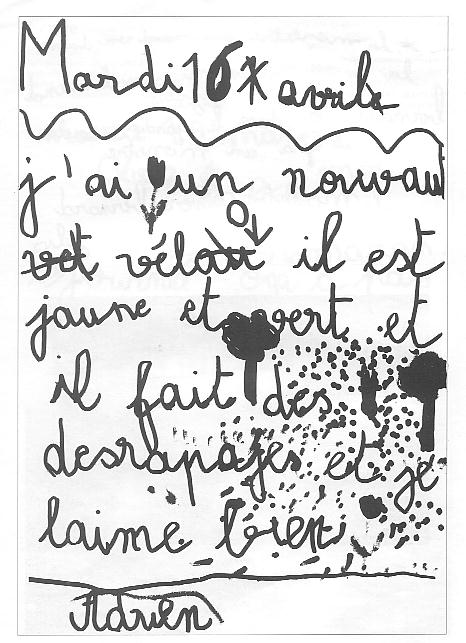 Mardi 16 avril
j'ai un nouvau
vélo il est
jaune et vert et
il fait des
desrapages et je
laime bien
Adrien